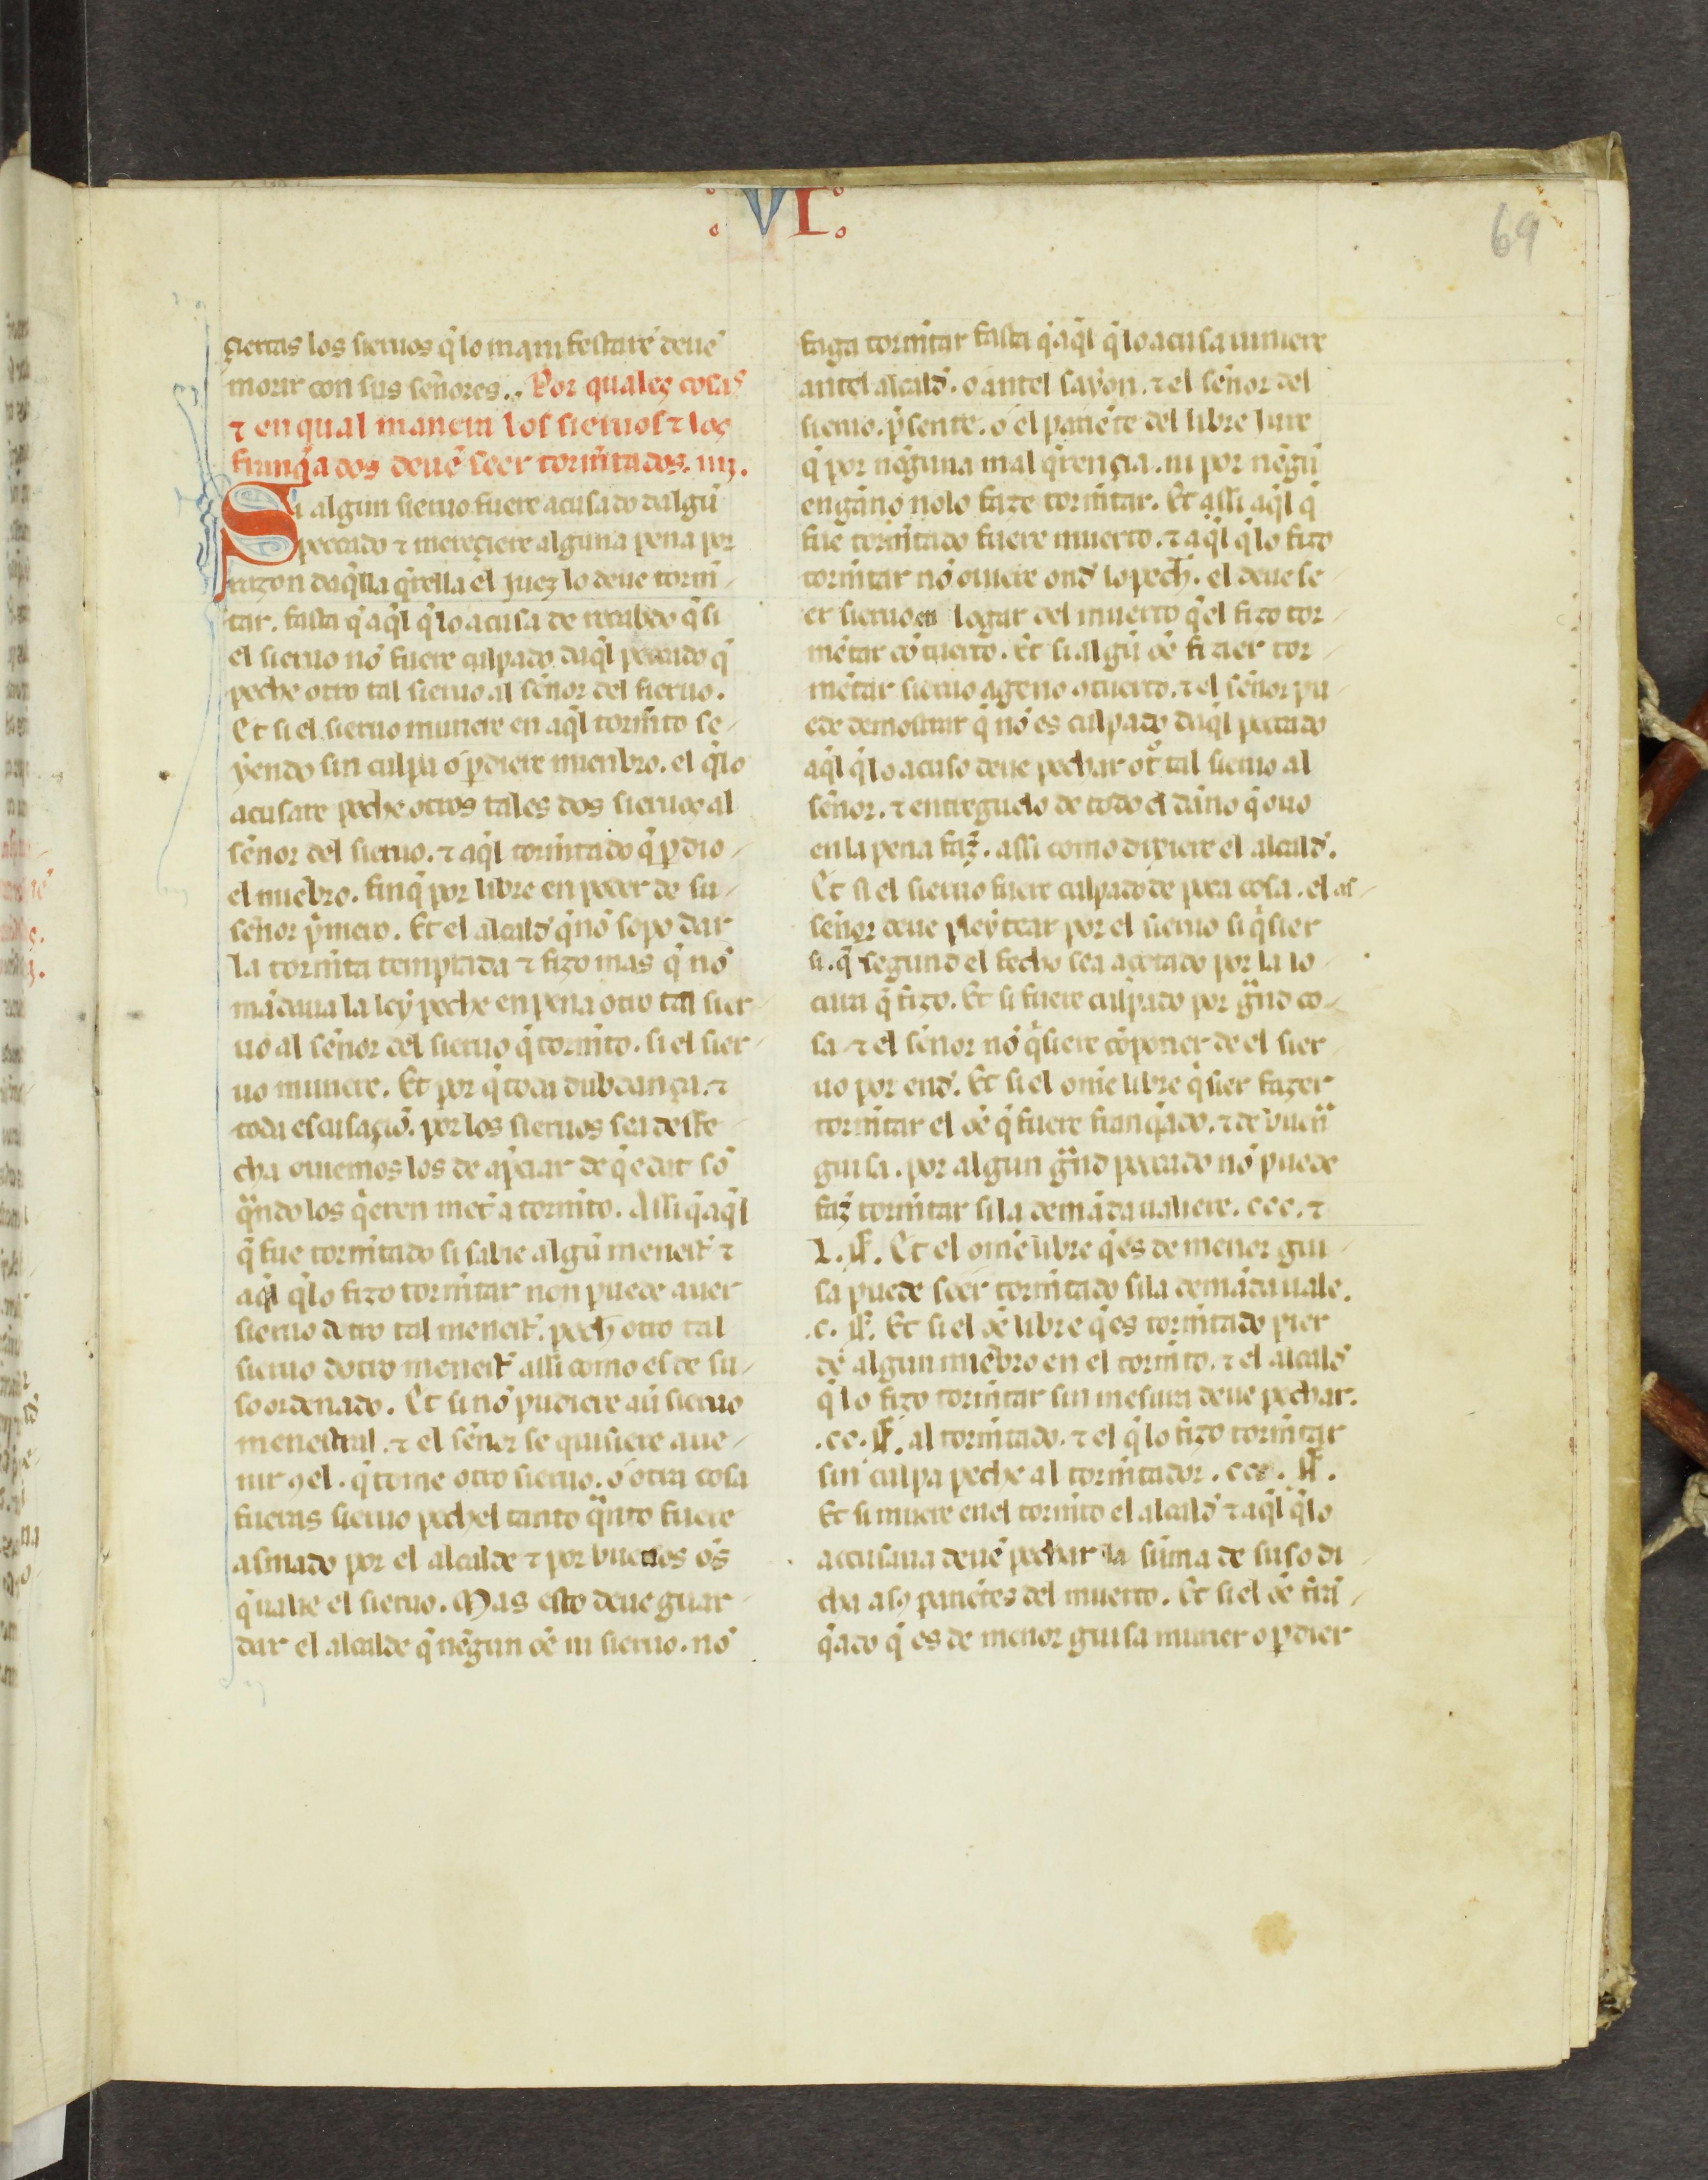 VI.
69
çiertas los sieruos q̃ lo manifestarẽ deuẽ
morir con sus señores. Por quales cosas
⁊ en qual manera los sieruos ⁊ los
franq̃ados deuẽ seer tormẽtados. iiij.
Si algun sieruo fuere acusado dalgũ
peccado ⁊ mereçiere alguna pena por
razon daq̃lla q̃rella el juez lo deue tormẽ-
tar. fasta q̃ aq̃l q̃ lo acusa de recabdo q̃ si
el sieruo nõ fuere culpado daq̃l peccado q̃
peche otro tal sieruo al señor del sieruo.
Et si el sieruo muriere en aq̃l tormẽto se-
yendo sin culpa o ꝑdiere mienbro. el q̃ lo
acusare peche otros tales dos sieruos al
señor del sieruo. ⁊ aq̃l tormẽtado q̃ ꝑdio
el miẽbro. finq̃ por libre en poder de su
señor p̃mero. Et el alcald̃ q̃ nõ sopo dar
la tormẽta temprada ⁊ fizo mas q̃ nõ
mãdaua la ley peche en pena otro tal sier
uo al señor del sieruo q̃ tormẽto. si el sier
uo muriere. Et por q̃ toda dubdança. ⁊
toda escusaçiõ. por los sieruos sea desfe
cha auemos los de apẽiar de q̃ edat sõ
q̃ndo los q̃eren met̃ a tormẽto. Assi q̃ aq̃l
q̃ fue tormẽtado si sabie algũ menest̃ ⁊
aq̃l q̃ lo fizo tormẽtar non puede auer
sieruo dotro tal menest̃. pech̃ otro tal
sieruo dotro menest̃ assi como es de su-
so ordenado. Et si nõ pudiere aũ sieruo
menestral. ⁊ el señor se quisiere aue-
nir ꝯ el. q̃ tome otro sieruo. o otra cosa
fueras sieruo pechel tanto q̃nto fuere
asmado por el alcalde ⁊ por buenos oẽs
q̃ ualie el sieruo. Mas esto deue guar
dar el alcalde q̃ nẽgun oẽ ni sieruo. nõ
faga tormẽtar fasta q̃ aq̃l q̃ lo acusa iuniere
antel alcald̃. o antel sayon. ⁊ el señor del
sieruo. p̃sente. o el pariẽte del libre jure
q̃ por nẽguna mal q̃rençia. ni por nẽgũ
engãno nolo faze tormẽtar. Et assi aq̃l q̃
fue tormẽtado fuere muerto. ⁊ aq̃l q̃ lo fizo
tormẽtar nõ ouiere ond̃ lo pech̃. el deue se
er sieruo en logar del muerto q̃ el fizo tor-
mẽtar cõ tuerto. Et si algũ oẽ fizier tor-
mẽtar sieruo ageno a tuerto. ⁊ el señor pu
ede demostrar q̃ nõ es culpado daq̃l peccado
aq̃l q̃ lo acuso deue pechar ot̃ tal sieruo al
señor. ⁊ entreguelo de todo el dãno q̃ ouo
en la pena faz̃. assi como dixiere el alcald̃.
Et si el sieruo fuere culpado de poca cosa. el
señor deue pleytear por el sieruo si q̃sier
si. q̃ segund el fecho sea açotado por la lo
cura q̃ fizo. Et si fuere culpado por g̃nd co-
sa ⁊ el señor nõ q̃siere cõponer de el sier
uo por end̃. Et si el omẽ libre q̃sier fazer
tormẽtar el oẽ q̃ fuere franq̃ado. ⁊ de buẽa
guisa. por algun g̃nd peccado nõ puede
faz̃ tormẽtar si la demãda ualiere. ccc. ⁊
l. ss̃. Et el omẽ libre q̃ es de menor gui
sa puede seer tormẽtado si la demãda uale.
.c. ss̃. Et si el oẽ libre q̃ es tormẽtado pier
dẽ algun miẽbro en el tormẽto. ⁊ el alcald̃
q̃ lo fizo tormẽtar sin mesura deue pechar.
.cc. ss̃. al tormẽtado. ⁊ el q̃ lo fizo tormẽtar
sin culpa peche al tormẽtador. ccc. ss̃.
Et si muere enel tormẽto el alcald̃ ⁊ aq̃l q̃ lo
accusaua deuẽ pechar la sũma de suso di
cha a los pariẽtes del muerto. Et si el oẽ frã-
q̃ado q̃ es de menor guisa murier o ꝑdier